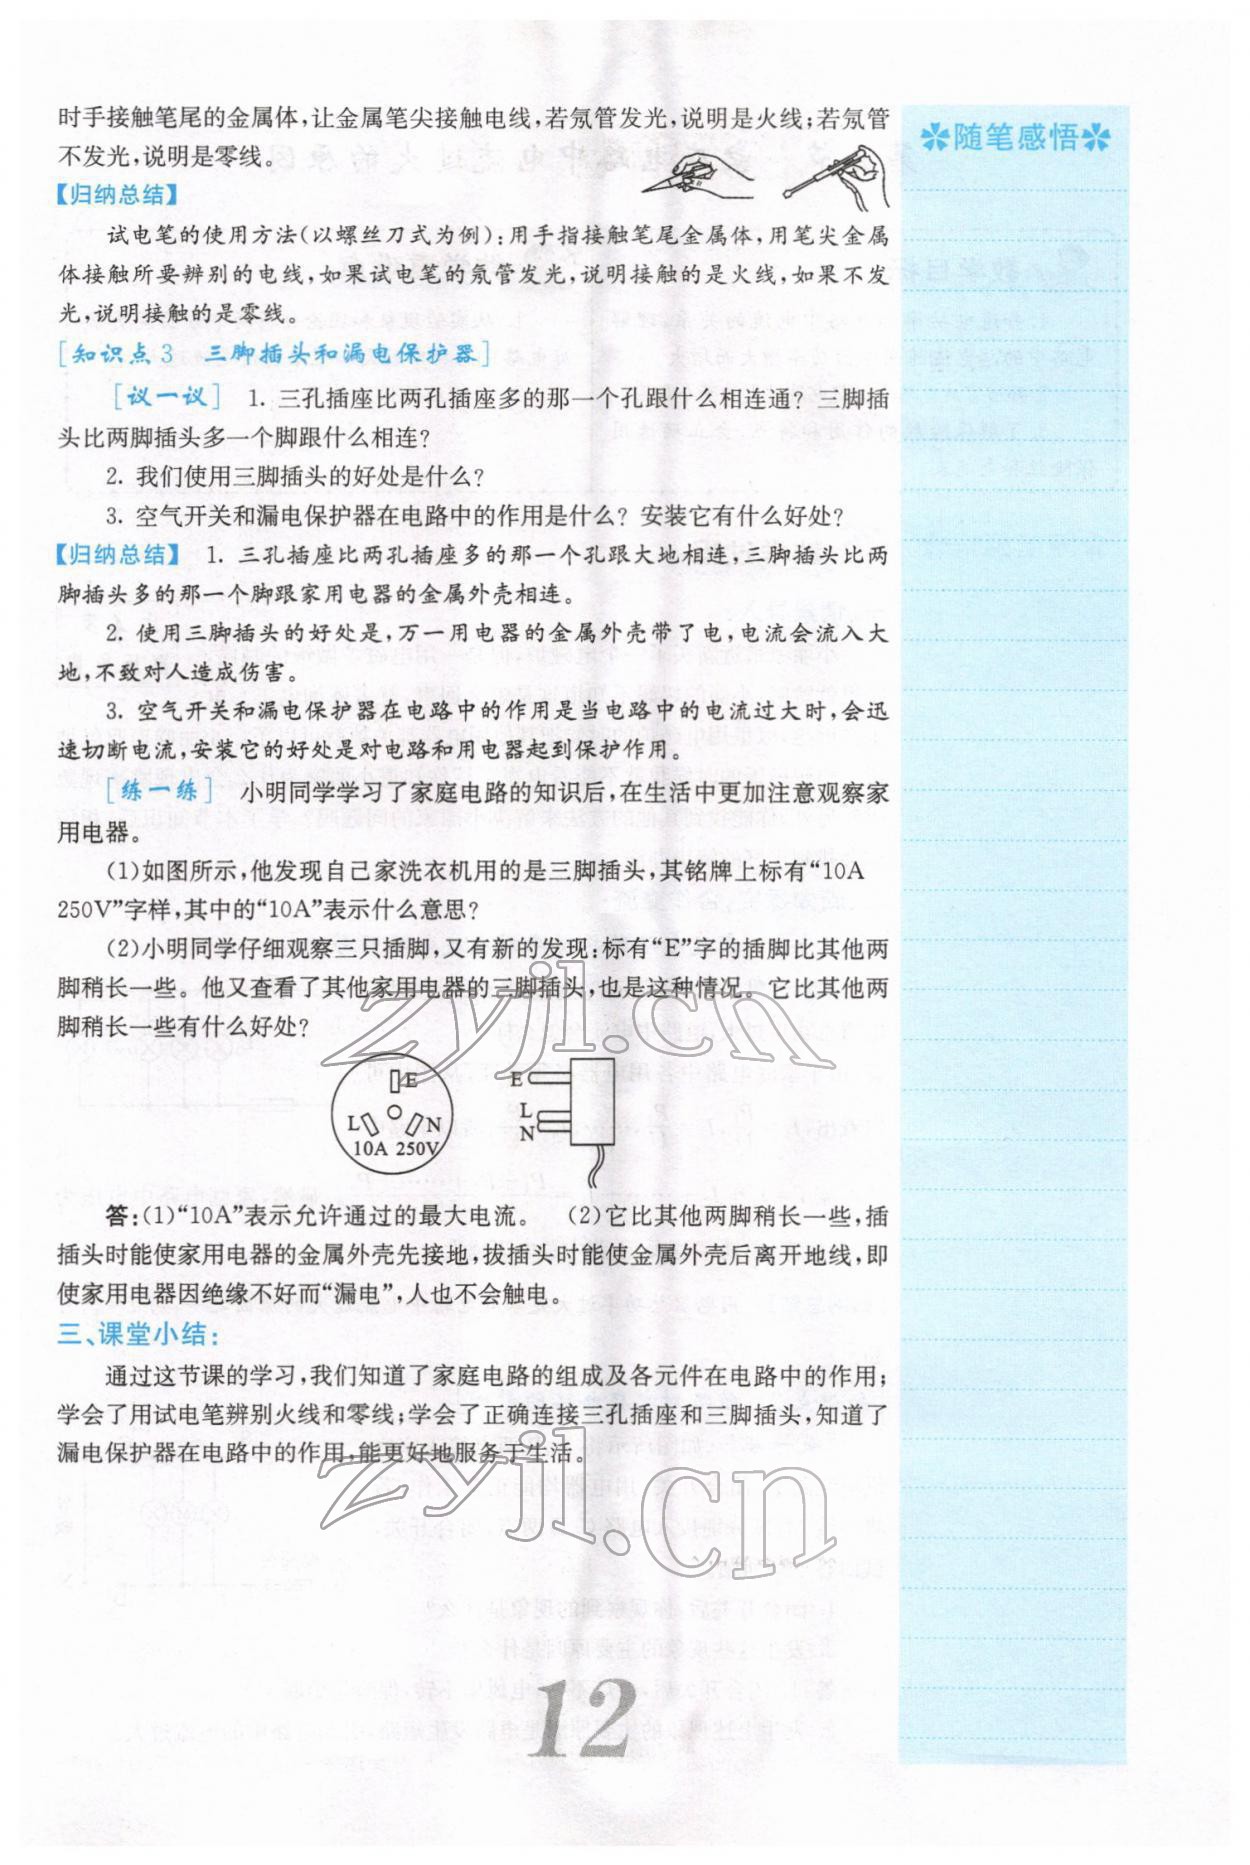 时手接触笔尾的金属体,让金属笔尖接触电线,若氖管发光,说明是火线;若氖管
不发光,说明是零线。
【归纳总结】
试电笔的使用方法(以螺丝刀式为例):用手指接触笔尾金属体,用笔尖金属
体接触所要辨别的电线,如果试电笔的氖管发光,说明接触的是火线,如果不发
光,说明接触的是零线。
[知识点3 三脚插头和漏电保护器]
[议一议] 1. 三孔插座比两孔插座多的那一个孔跟什么相连通? 三脚插
头比两脚插头多一个脚跟什么相连?
2. 我们使用三脚插头的好处是什么?
3. 空气开关和漏电保护器在电路中的作用是什么? 安装它有什么好处?
【归纳总结】 1. 三孔插座比两孔插座多的那一个孔跟大地相连,三脚插头比两
脚插头多的那一个脚跟家用电器的金属外壳相连。
2. 使用三脚插头的好处是,万一用电器的金属外壳带了电,电流会流入大
地,不致对人造成伤害。
3. 空气开关和漏电保护器在电路中的作用是当电路中的电流过大时,会迅
速切断电流,安装它的好处是对电路和用电器起到保护作用。
[练一练] 小明同学学习了家庭电路的知识后,在生活中更加注意观察家
用电器。
(1)如图所示,他发现自己家洗衣机用的是三脚插头,其铭牌上标有“10A
250V”字样,其中的“10A”表示什么意思?
(2)小明同学仔细观察三只插脚,又有新的发现:标有“E”字的插脚比其他两
脚稍长一些。他又查看了其他家用电器的三脚插头,也是这种情况。它比其他两
脚稍长一些有什么好处?
E
L N
10A 250V
E
L
N
答:(1)“10A”表示允许通过的最大电流。 (2)它比其他两脚稍长一些,插
插头时能使家用电器的金属外壳先接地,拔插头时能使金属外壳后离开地线,即
使家用电器因绝缘不好而“漏电”,人也不会触电。
三、课堂小结:
通过这节课的学习,我们知道了家庭电路的组成及各元件在电路中的作用;
学会了用试电笔辨别火线和零线;学会了正确连接三孔插座和三脚插头,知道了
漏电保护器在电路中的作用,能更好地服务于生活。
12
随笔感悟
zyjl.cn
zyjl.cn